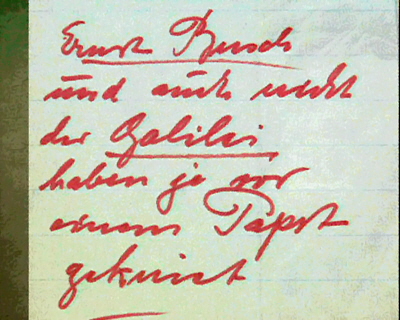 Ernst Busch
und auch nicht
der Galilei
haben je vor
einem Papst
gekniet